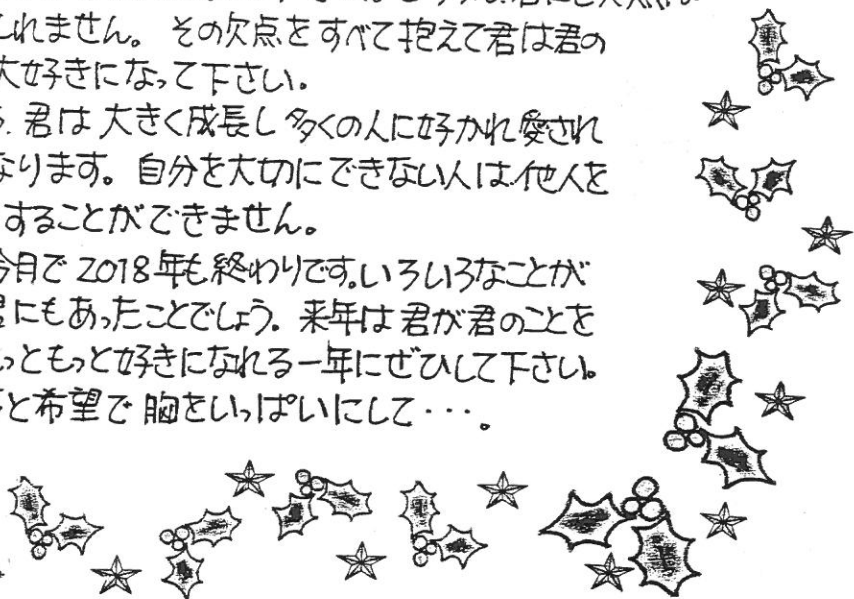 れません。その欠点をすべて抱えて君は君の
大好きになって下さい。
君は大きく成長し多くの人に好かれ愛され
なります。自分を大切にできない人は他人を
することができません。
今月で2018年も終わりです。いろいろなことが
にもあったことでしょう。来年は君が君のことを
っともっと好きになれる一年にぜひして下さい。
と希望で胸をいっぱいにして・・・。